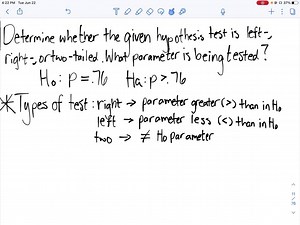 4:03 PM Tue Jun 22
Determine whether the given hypothesis test is left-,
right-, or two-tailed. What parameter is being tested?
H₀: p = .76 Ha: p > .76
*Types of test: right → parameter greater (>) than in H₀
left → parameter less (<) than in H₀
two → ≠ H₀ parameter